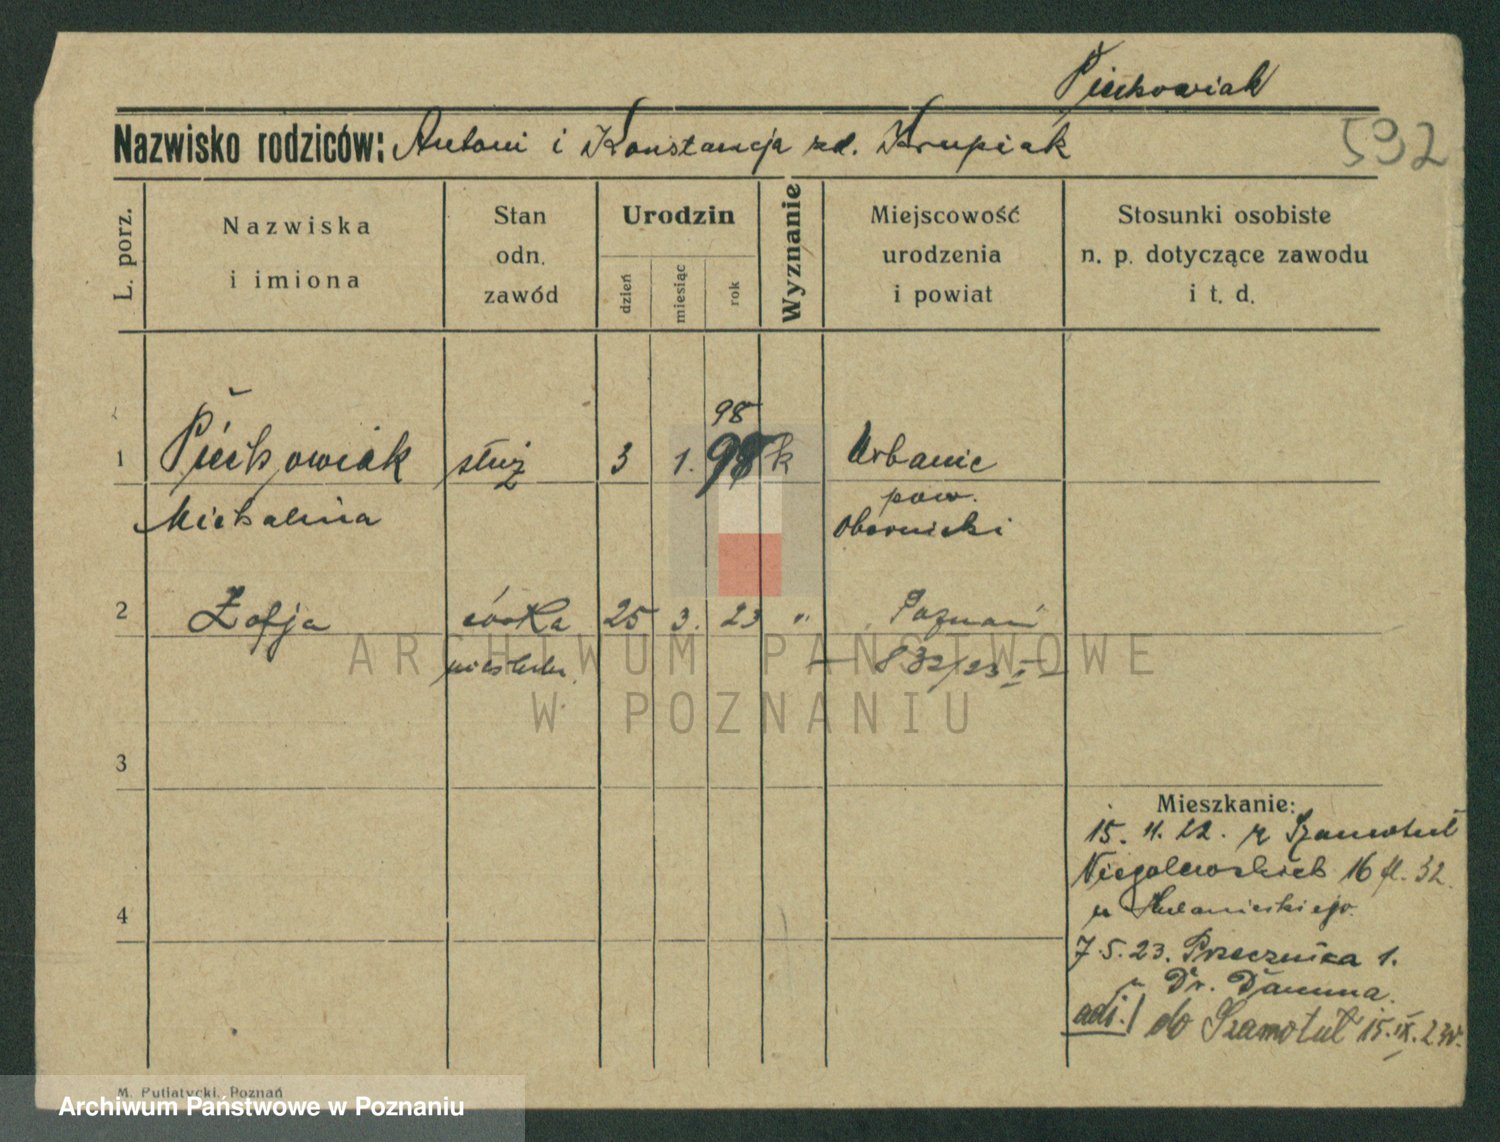 Piechowiak
Nazwisko rodziców: Antoni i Konstancja zd. Krupiak
592
L. porz.
Nazwiska
i imiona
Stan
odn.
zawód
Urodzin
dzień
miesiąc
rok
Wyznanie
Miejscowość
urodzenia
i powiat
Stosunki osobiste
n. p. dotyczące zawodu
i t. d.
98
1 Piechowiak służ 3 1. 98 k Urbanie
Michalina pow.
Obornicki
2 Zofja córka 25 3. 23 " Poznań
nieślub. 832/23 I
ARCHIWUM PAŃSTWOWE
W POZNANIU
3
Mieszkanie:
15. 11. 22. z Szamotuł
Niegolewskich 16 fl. 32
u
4
7.5.23. Przecznica 1.
u Dr. Damma.
adj. / do Szamotuł 15.IX.23r.
M. Putiatycki, Poznań
Archiwum Państwowe w Poznaniu